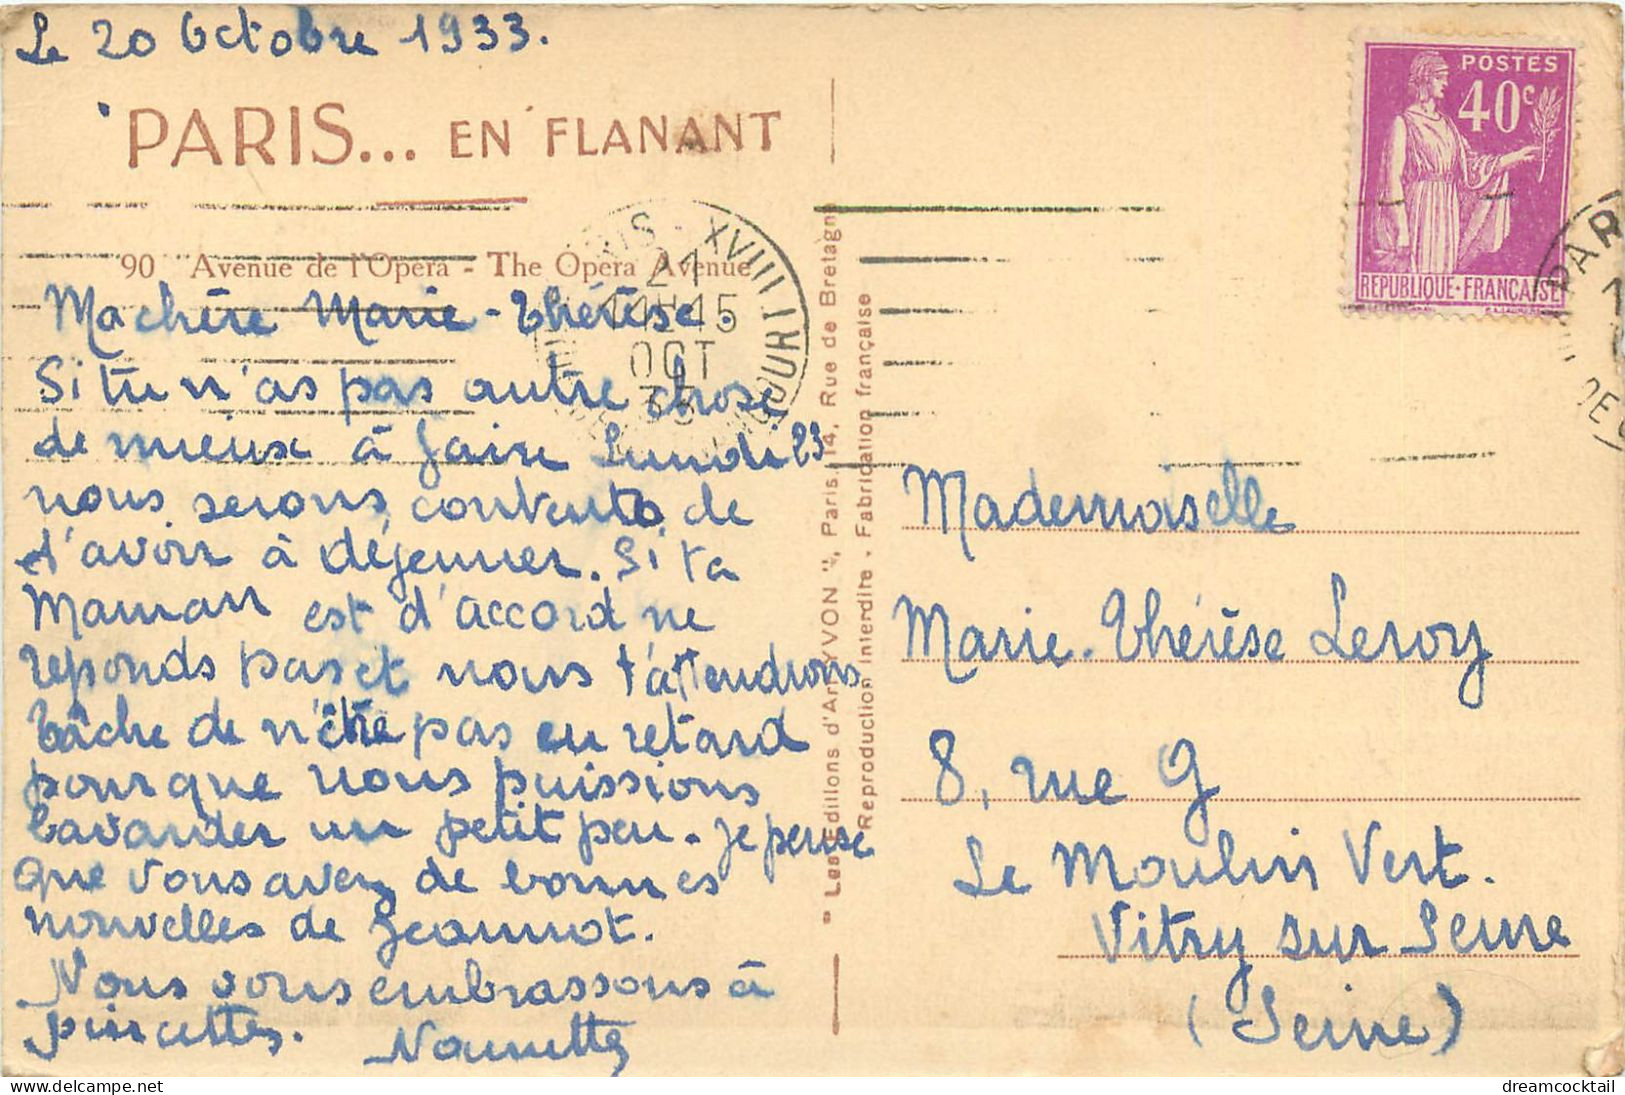 Le 20 Octobre 1933.
PARIS... EN FLANANT
90 Avenue de l'Opéra - The Opera Avenue
Ma chère Marie-Thérèse.
Si tu n'as pas autre chose
de mieux à faire Lundi 23
nous serons contents de
t'avoir à déjeuner. Si ta
Maman est d'accord ne
reponds pas et nous t'attendrons
tâche de n'être pas en retard
pour que nous puissions
bavarder un petit peu. Je pense
que vous avez de bonnes
nouvelles de Jeannot.
Nous vous embrassons à
pincettes.
Nounette
PARIS - XVIII
21
14H15
OCT
33
"Les Editions d'Art YVON", Paris, 14, Rue de Bretagne
Reproduction interdite - Fabrication française
POSTES
40c
REPUBLIQUE·FRANÇAISE
PAR
Mademoiselle
Marie-Thérèse Leroy
8, rue G
Le Moulin Vert.
Vitry sur Seine
(Seine)
dreamcocktail